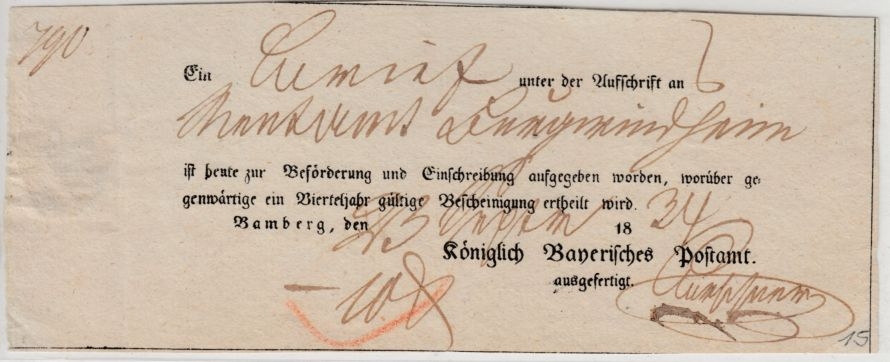 790
Ein Brief unter der Aufschrift an
Rentamt Burgwindheim
ist heute zur Beförderung und Einschreibung aufgegeben worden, worüber ge-
genwärtige ein Vierteljahr gültige Bescheinigung ertheilt wird.
Bamberg, den 23 Septbr 18 34
Königlich Bayerisches Postamt.
ausgefertigt.
10
15